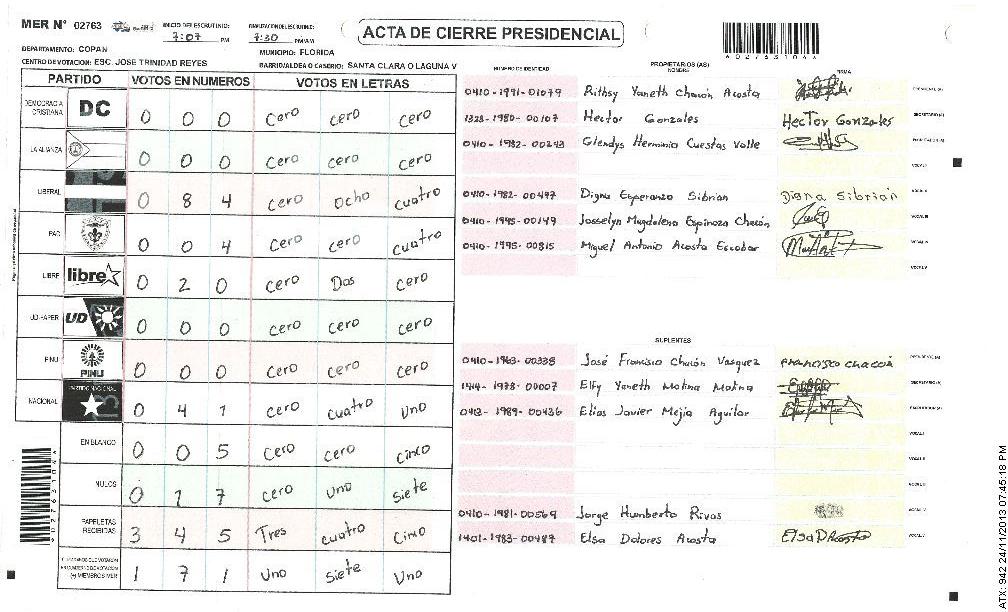 MER N° 02763
INICIO DEL ESCRUTINIO: 7:07 PM
FINALIZACION DEL ESCRUTINIO: 7:30 PM/AM
ACTA DE CIERRE PRESIDENCIAL
DEPARTAMENTO: COPAN
MUNICIPIO: FLORIDA
CENTRO DE VOTACION: ESC. JOSE TRINIDAD REYES
BARRIO/ALDEA O CASERIO: SANTA CLARA O LAGUNA V
PARTIDO VOTOS EN NUMEROS VOTOS EN LETRAS
DEMOCRACIA CRISTIANA DC 0 0 0 Cero cero cero
LA ALIANZA 0 0 0 Cero cero cero
LIBERAL 0 8 4 cero ocho cuatro
PAC 0 0 4 Cero cero cuatro
LIBRE libre 0 2 0 cero Dos cero
UD-FAPER UD 0 0 0 cero cero cero
PINU PINU 0 0 0 cero cero cero
NACIONAL PARTIDO NACIONAL 0 4 1 cero cuatro uno
EN BLANCO 0 0 5 cero cero cinco
NULOS 0 1 7 cero uno siete
PAPELETAS RECIBIDAS 3 4 5 Tres cuatro Cinco
(+) MIEMBROS MER 1 7 1 uno siete uno
NUMERO DE IDENTIDAD PROPIETARIOS (AS) NOMBRE FIRMA
0410-1991-01079 Rithsy Yaneth Chacón Acosta PRESIDENTE (A)
1328-1980-00107 Hector Gonzales Hector Gonzales SECRETARIO (A)
0410-1982-00243 Glendys Herminia Cuestas Valle
VOCAL I
0410-1982-00497 Digna Esperanza Sibrian Digna Sibrian VOCAL II
0410-1995-00149 Josselyn Magdalena Espinoza Chacón VOCAL III
0410-1995-00815 Miguel Antonio Acosta Escobar VOCAL IV
VOCAL V
SUPLENTES
0410-1963-00338 José Francisco Chacón Vasquez Francisco chacon PRESIDENTE (A)
1414-1973-00007 Elfy Yaneth Molina Molina SECRETARIO (A)
0413-1989-00436 Elias Javier Mejía Aguilar
VOCAL I
VOCAL II
VOCAL III
0410-1981-00569 Jorge Humberto Rivas VOCAL IV
1401-1983-00487 Elsa Dolores Acosta Elsa D Acosta VOCAL V
ATX: 942 24/11/2013 07:45:18 PM